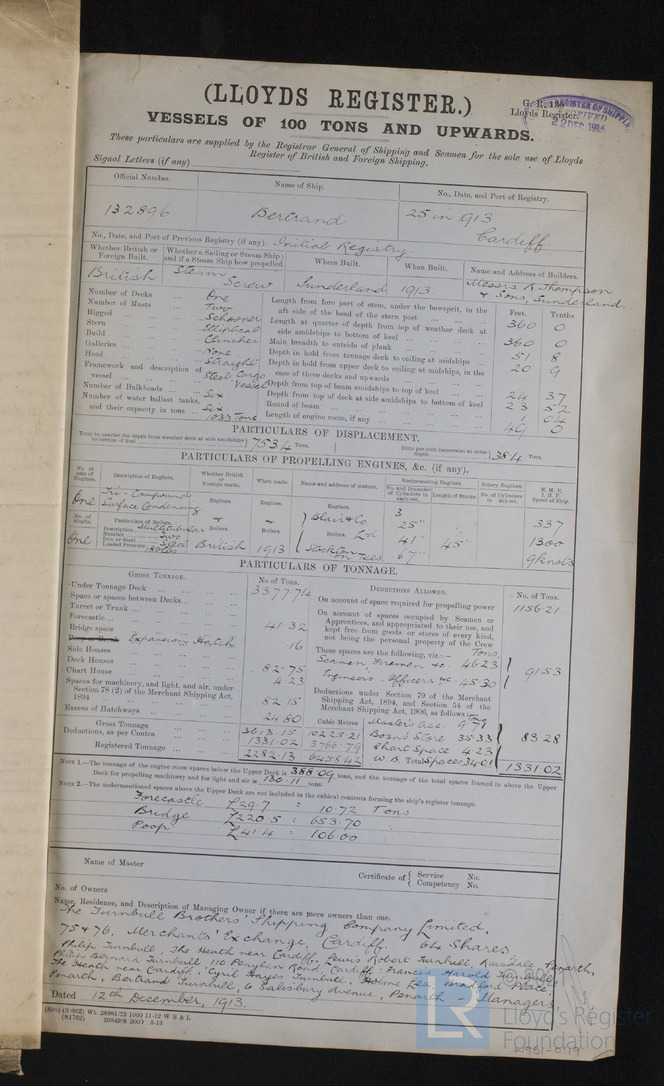 (LLOYDS REGISTER.)
VESSELS OF 100 TONS AND UPWARDS.
Lloyds Register.
22 DEC 1914
These particulars are supplied by the Registrar General of Shipping and Seamen for the sole use of Lloyds
Register of British and Foreign Shipping.
Signal Letters (if any)
Official Number. Name of Ship. No., Date, and Port of Registry.
132896 Bertrand 25 in 1913 Cardiff
No., Date, and Port of Previous Registry (if any). Initial Registry
Whether British or Foreign Built. Whether a Sailing or Steam Ship; and if a Steam Ship how propelled. Where Built. When Built. Name and Address of Builders.
British Steam Screw Sunderland 1913 Messrs R. Thompson & Sons, Sunderland.
Number of Decks ... One
Number of Masts ... Two
Rigged ... Schooner
Stern ... Elliptical
Build ... Clincher
Galleries ... None
Head ... Straight
Framework and description of vessel ... Steel Cargo Vessel
Number of Bulkheads ... Six
Number of water ballast tanks, and their capacity in tons ... Six 1035 Tons
Feet. Tenths
Length from fore part of stem, under the bowsprit, to the aft side of the head of the stern post 360 0
Length at quarter of depth from top of weather deck at side amidships to bottom of keel 360 0
Main breadth to outside of plank 51 8
Depth in hold from tonnage deck to ceiling at midships 20 9
Depth in hold from upper deck to ceiling at midships, in the case of three decks and upwards
Depth from top of beam amidships to top of keel 24 37
Depth from top of deck at side amidships to bottom of keel 23 52
Round of beam 1 04
Length of engine room, if any 49 0
PARTICULARS OF DISPLACEMENT.
Total to quarter the depth from weather deck at side amidships to bottom of keel 7534 Tons. Ditto per inch immersion at same depth 38.4 Tons.
PARTICULARS OF PROPELLING ENGINES, &c. (if any).
No. of sets of Engines. Description of Engines. Whether British or Foreign made. When made. Name and address of makers. Reciprocating Engines. No. and Diameter of Cylinders in each set. Length of Stroke. Rotary Engines. No. of Cylinders in each set. N. H. P. I. H. P. Speed of Ship.
One Tri-Compound Surface Condensing Engines. Engines. Engines. 3
No. of Shafts. Particulars of Boilers. & Boilers. & Boilers. Blair & Co Ltd Boilers. 25" 337
Description Multitubular
Number Two 41" 45" 1300
One Iron or Steel Steel British 1913 Stockton on Tees 67" 9 knots
Loaded Pressure 180 lbs
PARTICULARS OF TONNAGE.
GROSS TONNAGE. No of Tons.
Under Tonnage Deck ... 3377.74
Space or spaces between Decks...
Turret or Trunk ...
Forecastle ...
Bridge space ... 41.32
Expansion Hatch .16
Side Houses
Deck Houses ... 82.75
Chart House ... 4.23
Spaces for machinery, and light, and air, under Section 78 (2) of the Merchant Shipping Act, 1894 ... 82.15
Excess of Hatchways ... 24.80
Cubic Metres
Gross Tonnage ... 3613.15 10225.21
Deductions, as per Contra ... 1331.02 3766.79
Registered Tonnage ... 2282.13 6458.42
DEDUCTIONS ALLOWED. No. of Tons.
On account of space required for propelling power 1156.21
On account of spaces occupied by Seamen or Apprentices, and appropriated to their use, and kept free from goods or stores of every kind, not being the personal property of the Crew
These spaces are the following, viz:— Tons
Seamen, Firemen &c. 46.23
Engineers, Officers &c. 45.30 91.53
Deductions under Section 79 of the Merchant Shipping Act, 1894, and Section 54 of the Merchant Shipping Act, 1906, as follows: Tons
Master's acc. 9.71
Bosn's Store 35.33 83.28
Chart Space 4.23
W. B. Spaces 34.01
Total 1331.02
NOTE 1.—The tonnage of the engine room spaces below the Upper Deck is 388.09 tons, and the tonnage of the total spaces framed in above the Upper Deck for propelling machinery and for light and air is 130.11 tons.
NOTE 2.—The undermentioned spaces above the Upper Deck are not included in the cubical contents forming the ship's register tonnage.
Forecastle L29.7 = 10.72 Tons
Bridge L220.5 = 653.70
Poop L41.4 = 106.00
Name of Master
Certificate of { Service No. Competency No.
No. of Owners
Name, Residence, and Description of Managing Owner if there are more owners than one.
The Turnbull Brothers' Shipping Company Limited,
75 & 76, Merchants' Exchange, Cardiff. 64 Shares
Philip Turnbull, The Heath near Cardiff, Lewis Robert Turnbull, Penarth,
Philip Bernard Turnbull, 110 Road, Cardiff, Francis Harold Turnbull,
The Heath near Cardiff, Cyril Turnbull, Holme Lea, Bradford Place
Penarth, Bertrand Turnbull, 6 Salisbury Avenue, Penarth - Managers
Dated 12th December, 1913.
20349/8 2000 3-13
© 2021
LR
Lloyd's Register
Foundation